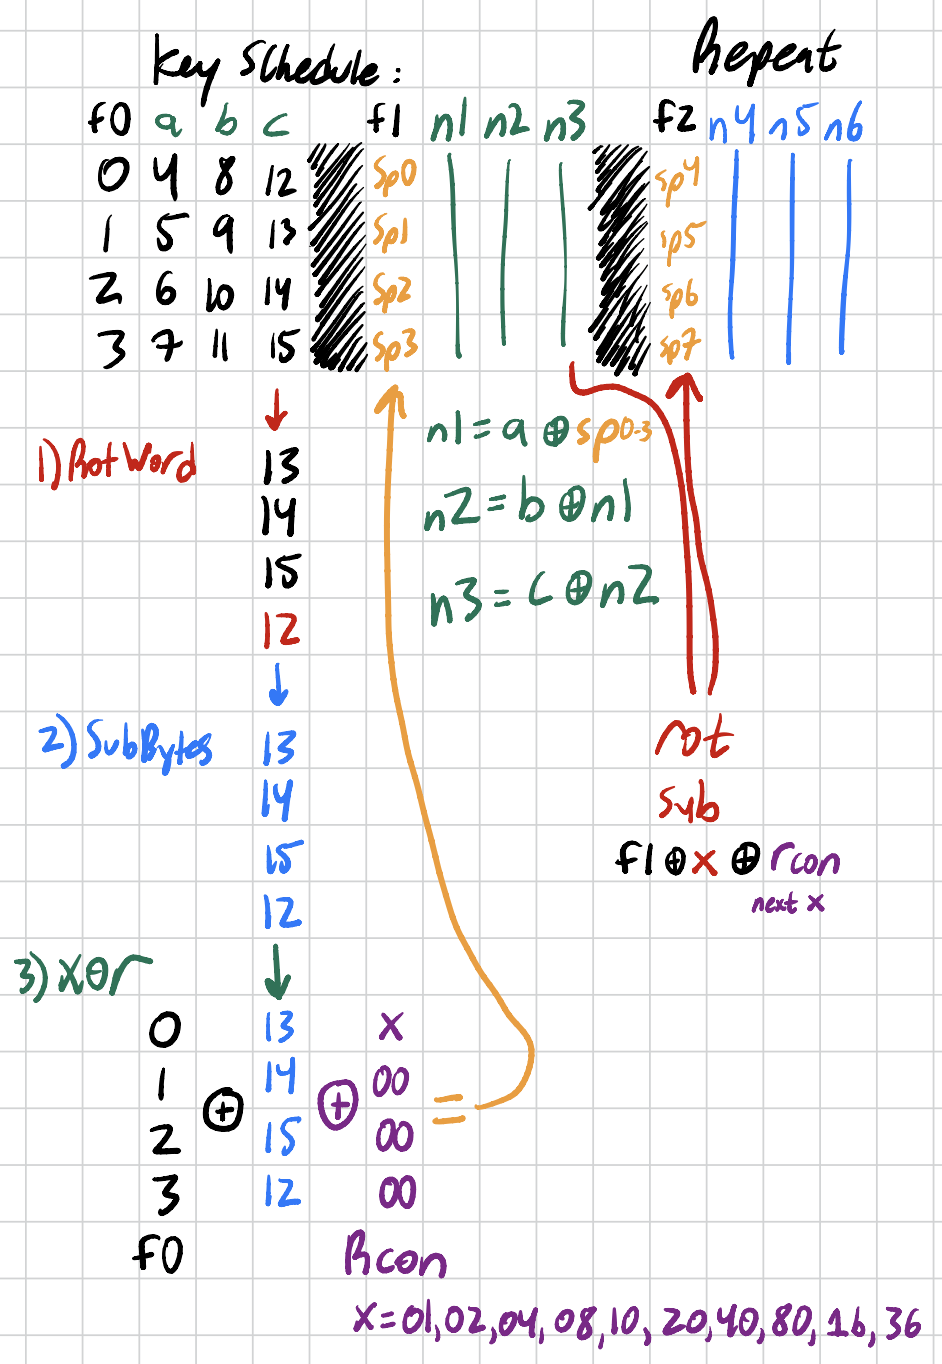 Key Schedule: Repeat
f0 a b c f1 n1 n2 n3 f2 n4 n5 n6
0 4 8 12 sp0 sp4
1 5 9 13 sp1 sp5
2 6 10 14 sp2 sp6
3 7 11 15 sp3 sp7
n1 = a ⊕ sp0-3
1) RotWord 13
14
15
12
n2 = b ⊕ n1
n3 = c ⊕ n2
2) SubBytes 13
14
15
12
rot
sub
f1 ⊕ x ⊕ rcon
next x
3) XOr
0 13 x
1 14 00
⊕ ⊕ =
2 15 00
3 12 00
f0 Rcon
x = 01, 02, 04, 08, 10, 20, 40, 80, 1b, 36